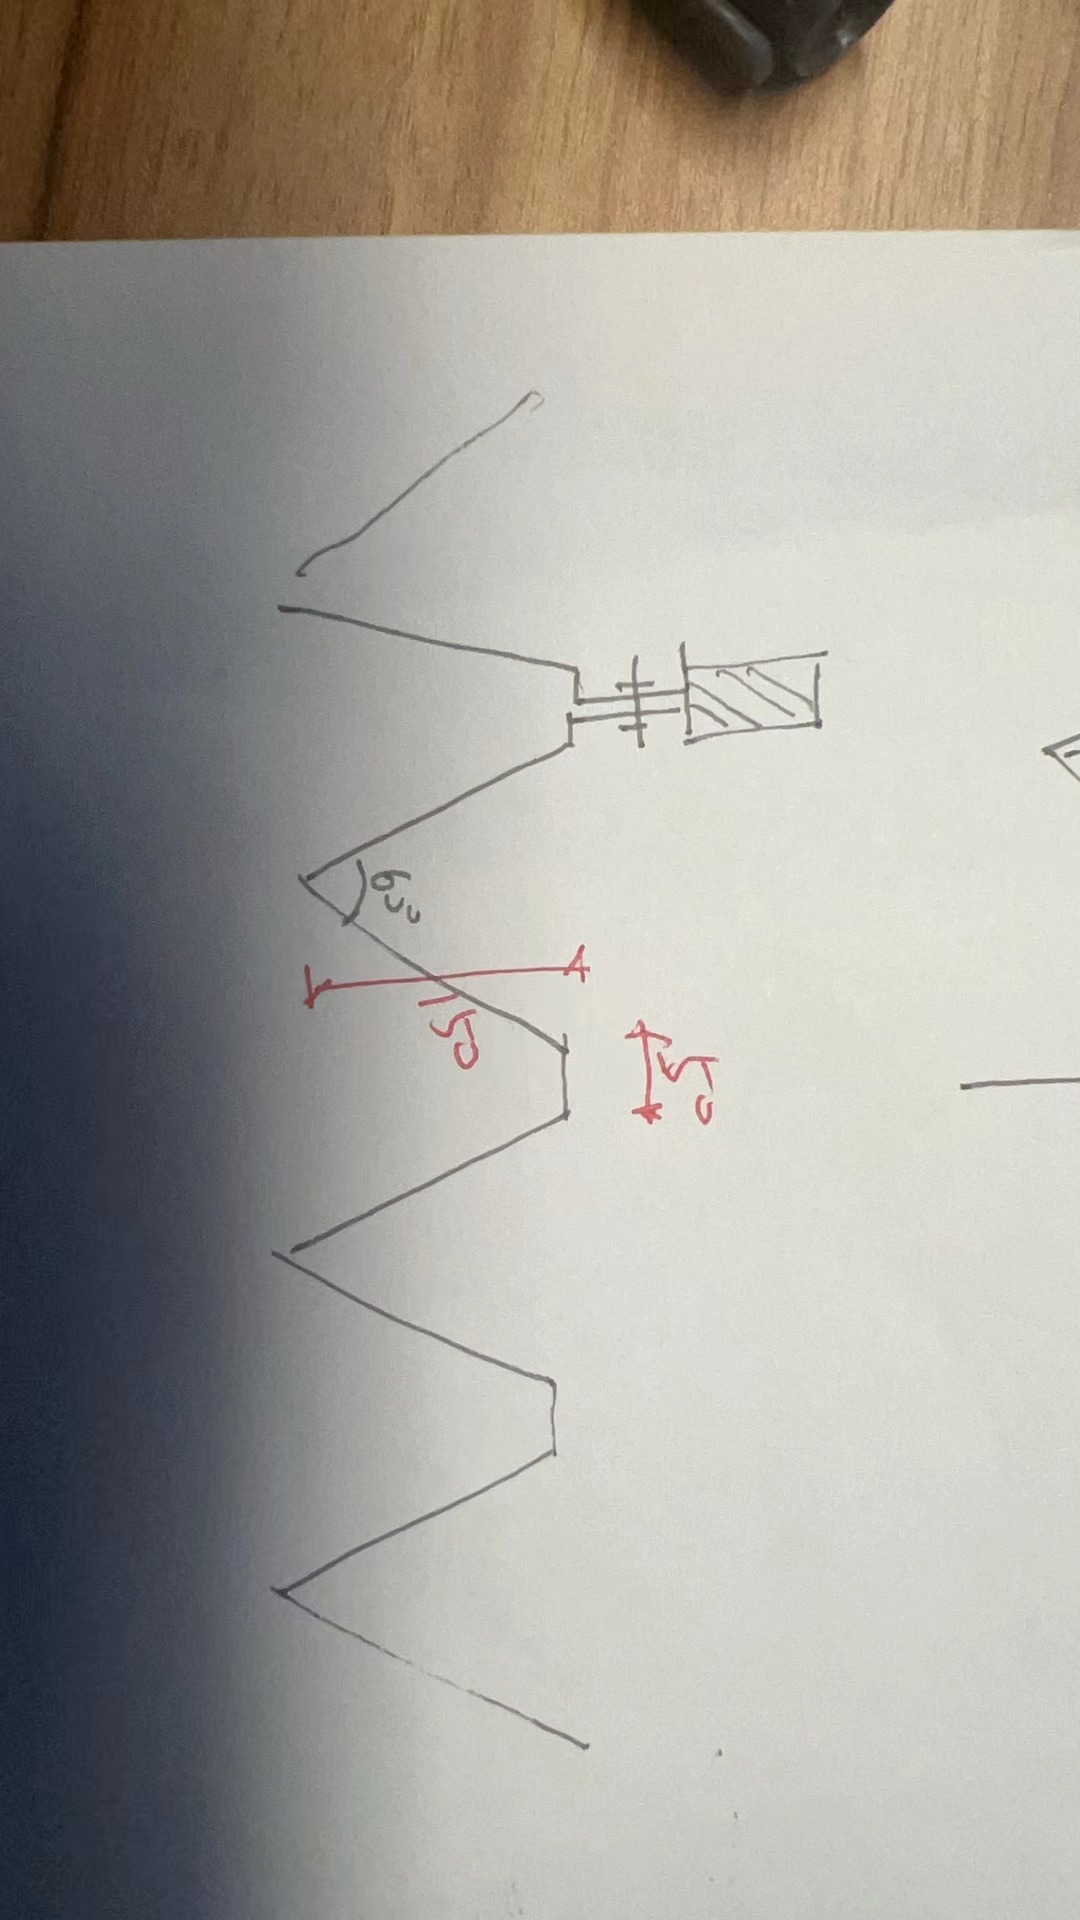 50
150
60°